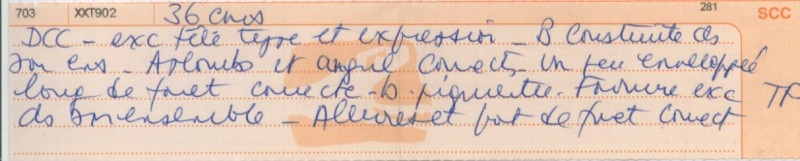 703 XXT902 36 cms 281 SCC
DCC - exc tête type et expression - B construite ds
son ens - Aplombs et angul correcte. Un peu enveloppée
long de fouet correcte - b. pigmentée. Fourrure exc TP
ds son ensemble - Allures et port de fouet correct